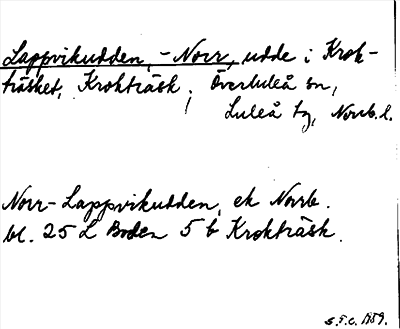 Lappvikudden, - Norr, udde i Krok-
träsket, Krokträsk, Överluleå sn,
Luleå tg, Norrb. l.
Norr-Lappvikudden, ek Norrb.
bl. 25 L Boden 5 b Krokträsk.
S.F.C. 1959.